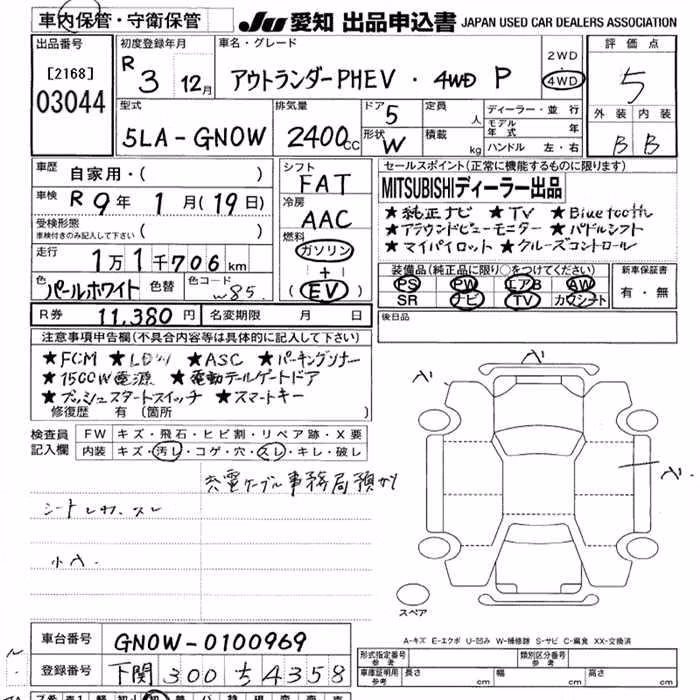 車内保管・守衛保管 JU 愛知 出品申込書 JAPAN USED CAR DEALERS ASSOCIATION
出品番号 [2168] 03044
初度登録年月 R 3 12月
車名・グレード アウトランダーPHEV・4WD P
2WD 4WD
評価点 5
型式 5LA-GN0W
排気量 2400cc
ドア 5 形状 W
定員 人 積載 kg
ディーラー・並行
モデル年式 年
ハンドル 左・右
外装 内装
B B
車歴 自家用・( )
車検 R 9年 1月(19日)
受検形態 車検付きのみ記入して下さい ( )
走行 1万1千706km
色 パールホワイト 色替 色コード W85
シフト FAT
冷房 AAC
燃料 ガソリン + EV
セールスポイント(正常に機能するものに限ります)
MITSUBISHIディーラー出品
★純正ナビ ★TV ★Bluetooth
★アラウンドビューモニター ★パドルシフト
★マイパイロット ★クルーズコントロール
装備品(純正品に限り○をつけてください)
PS PW エアB AW
SR ナビ TV カワシート
新車保証書 有・無
R券 11,380円 名変期限 月 日
後日品
注意事項申告欄(不具合内容等は具体的に記入して下さい)
★FCM ★ASC ★パーキングソナー
★1500W電源 ★電動テールゲートドア
★プッシュスタートスイッチ ★スマートキー
修復歴 有 (箇所 )
検査員記入欄
FW キズ・飛石・ヒビ割・リペア跡・X要
内装 キズ・汚レ・コゲ・穴・スレ・キレ・破レ
充電ケーブル事務局預かり
シートしわ、スレ
スペア
A-キズ E-エクボ U-凹み W-補修跡 S-サビ C-腐食 XX-交換済
車台番号 GN0W-0100969
登録番号 下関 300 ち 4358
形式指定番号 参考 類別区分番号 参考
車庫証明用 参考 長さ cm 幅 cm 高さ cm